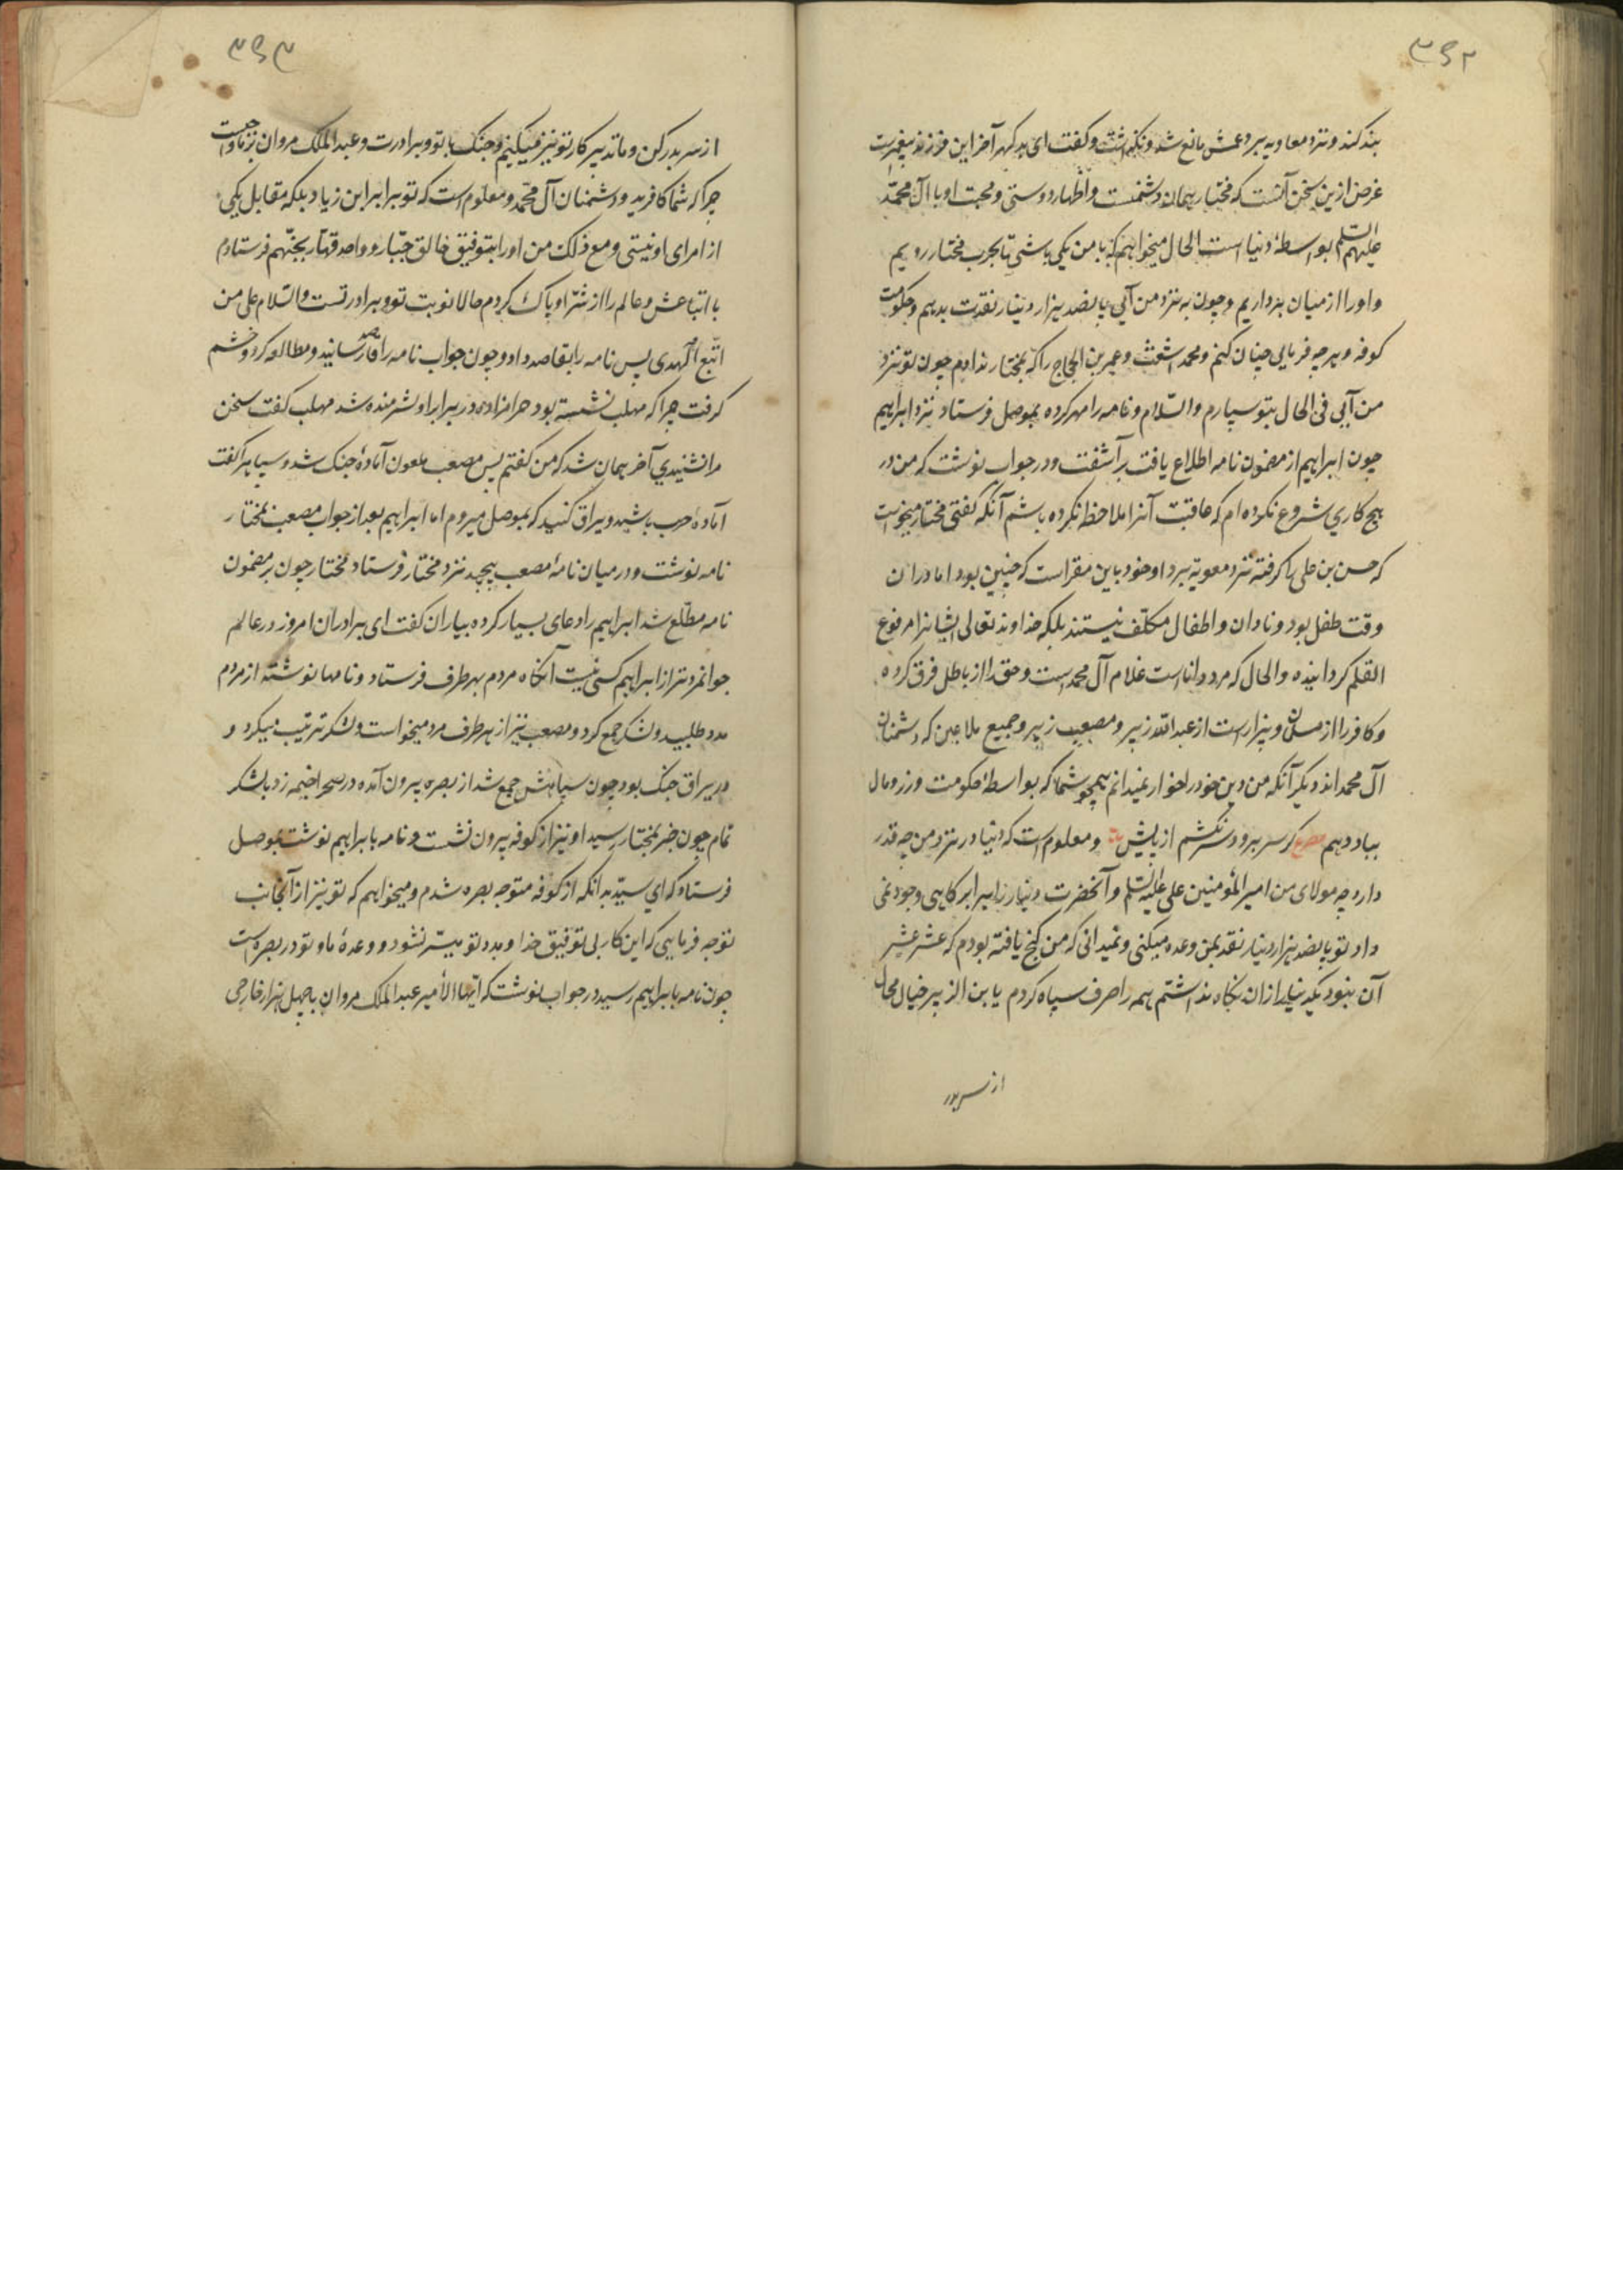 ۳۶۲
بند کند و نزد معاویه برد عمش مانع شد و نگذاشت و گفت ای بد گهر آخر این فرزند پیغمبرست
غرض ازین سخن آنست که مختار همان دشمنست و اظهار دوستی و محبت او با آل محمد
علیهم السلام بواسطهٔ دنیا است الحال میخواهم که با من یکی باشی تا بحرب مختار رویم
و او را از میان برداریم و چون به نزد من آیی پانصد هزار دینار نقدت بدهم و حکومت
کوفه و هر چه فرمایی چنان کنم و محمد اشعث و عمر بن الحجاج را که بمختار ندادم چون تو نزد
من آیی فی الحال بتو سپارم والسلام و نامه را مهر کرده بموصل فرستاد نزد ابراهیم
چون ابراهیم از مضمون نامه اطلاع یافت برآشفت و در جواب نوشت که من در
هیچ کاری شروع نکرده ام که عاقبت آنرا ملاحظه نکرده باشم آنکه گفتی مختار میخواست
که حسن بن علی را گرفته نزد معویه برد او خود باین مقر است که چنین بود اما در آن
وقت طفل بود و نادان و اطفال مکلف نیستند بلکه خداوند تعالی ایشانرا مرفوع
القلم گردانیده والحال که مرد دانا است غلام آل محمد است و حق را از باطل فرق کرده
و کافر را از مسلمان و بیزار است از عبدالله زبیر و مصعب زبیر و جمیع ملاعین که دشمنان
آل محمد اند دیگر آنکه من دین خود را خوار نمیدانم همچو شما که بواسطهٔ حکومت و زر و مال
بباد دهم مصرع گر سر برود سر نکشم از پیش و معلوم است که دنیا در نزد من چه قدر
دارد چه مولای من امیر المؤمنین علی علیه السلم و آنحضرت دنیا را برابر کاهی وجود نمی
داد تو پانصد هزار دینار نقد بمن وعده میکنی و نمیدانی که من گنج یافته بودم که عشر عشیر
آن نبود یک دینار از ان نگاه نداشتم همه را صرف سپاه کردم یا بن الزبیر خیال محال
از سر بدر
۳۶۳
از سر بدر کن و ما تدبیر کار تو نیز میکنیم و جنگ با تو و برادرت و عبد الملک مروان بر ما واجبست
چرا که شما کافرید و دشمنان آل محمد و معلوم است که تو برابر ابن زیاد بلکه مقابل یکی
از امرای او نیستی و مع ذلک من او را بتوفیق خالق جبار و واحد قهار بجهنم فرستادم
با اتباعش و عالم را از شر او پاک کردم حالا نوبت تو و برادر تست والسلام علی من
اتبع الهدی پس نامه را بقاصد داد و چون جواب نامه را قاصد رسانید و مطالعه کرد و خشم
گرفت چرا که مهلب نشسته بود حرامزاده در برابر او شرمنده شد مهلب گفت سخن
مرا نشنیدی آخر همان شد که من گفتم پس مصعب ملعون آمادهٔ جنگ شد و سپاه را گفت
آمادهٔ حرب باشید و یراق کنید که بموصل میروم اما ابراهیم بعد از جواب مصعب بمختار
نامه نوشت و در میان نامهٔ مصعب پیچید نزد مختار فرستاد مختار چون بر مضمون
نامه مطلع شد ابراهیم را دعای بسیار کرده بیاران گفت ای برادران امروز در عالم
جوانمردتر از ابراهیم کسی نیست آنگاه مردم بهر طرف فرستاد و نامها نوشته از مردم
مدد طلبید و لشکر جمع کرد و مصعب نیز از هر طرف مرد میخواست و لشکر ترتیب میکرد و
در یراق جنگ بود چون سپاهش جمع شد از بصره بیرون آمده در صحرا خیمه زد با لشکر
تمام چون خبر بمختار رسید او نیز از کوفه بیرون نشست و نامه بابراهیم نوشت بموصل
فرستاد که ای سید بدانکه از کوفه متوجه بصره شدم و میخواهم که تو نیز از آنجانب
توجه فرمایی که این کار بی توفیق خدا و مدد تو میسر نشود و وعدهٔ ما و تو در بصره است
چون نامه بابراهیم رسید در جواب نوشت که ایها الامیر عبد الملک مروان با چهل هزار خارجی